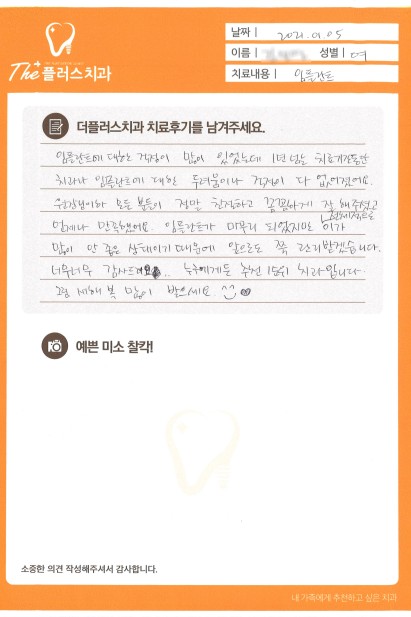 날짜 | 2021.01.05
이름 | 성별 | 여
치료내용 | 임플란트
The+ 플러스치과
더플러스치과 치료후기를 남겨주세요.
임플란트에 대한 걱정이 많이 있었는데 1년 넘는 치료기간동안
치과나 임플란트에 대한 두려움이나 걱정이 다 없어졌어요.
원장님이하 모든 분들이 정말 친절하고 꼼꼼하게 잘 해주셨고
언제나 만족했어요. 임플란트가 마무리 되었지만 전체적으로 이가
많이 안 좋은 상태이기 때문에 앞으로도 쭉 관리받겠습니다.
너무너무 감사드려요.. 누구에게든 추천 1순위 치과입니다.
그럼 새해 복 많이 받으세요. ^^
예쁜 미소 찰칵!
소중한 의견 작성해주셔서 감사합니다.
내 가족에게 추천하고 싶은 치과